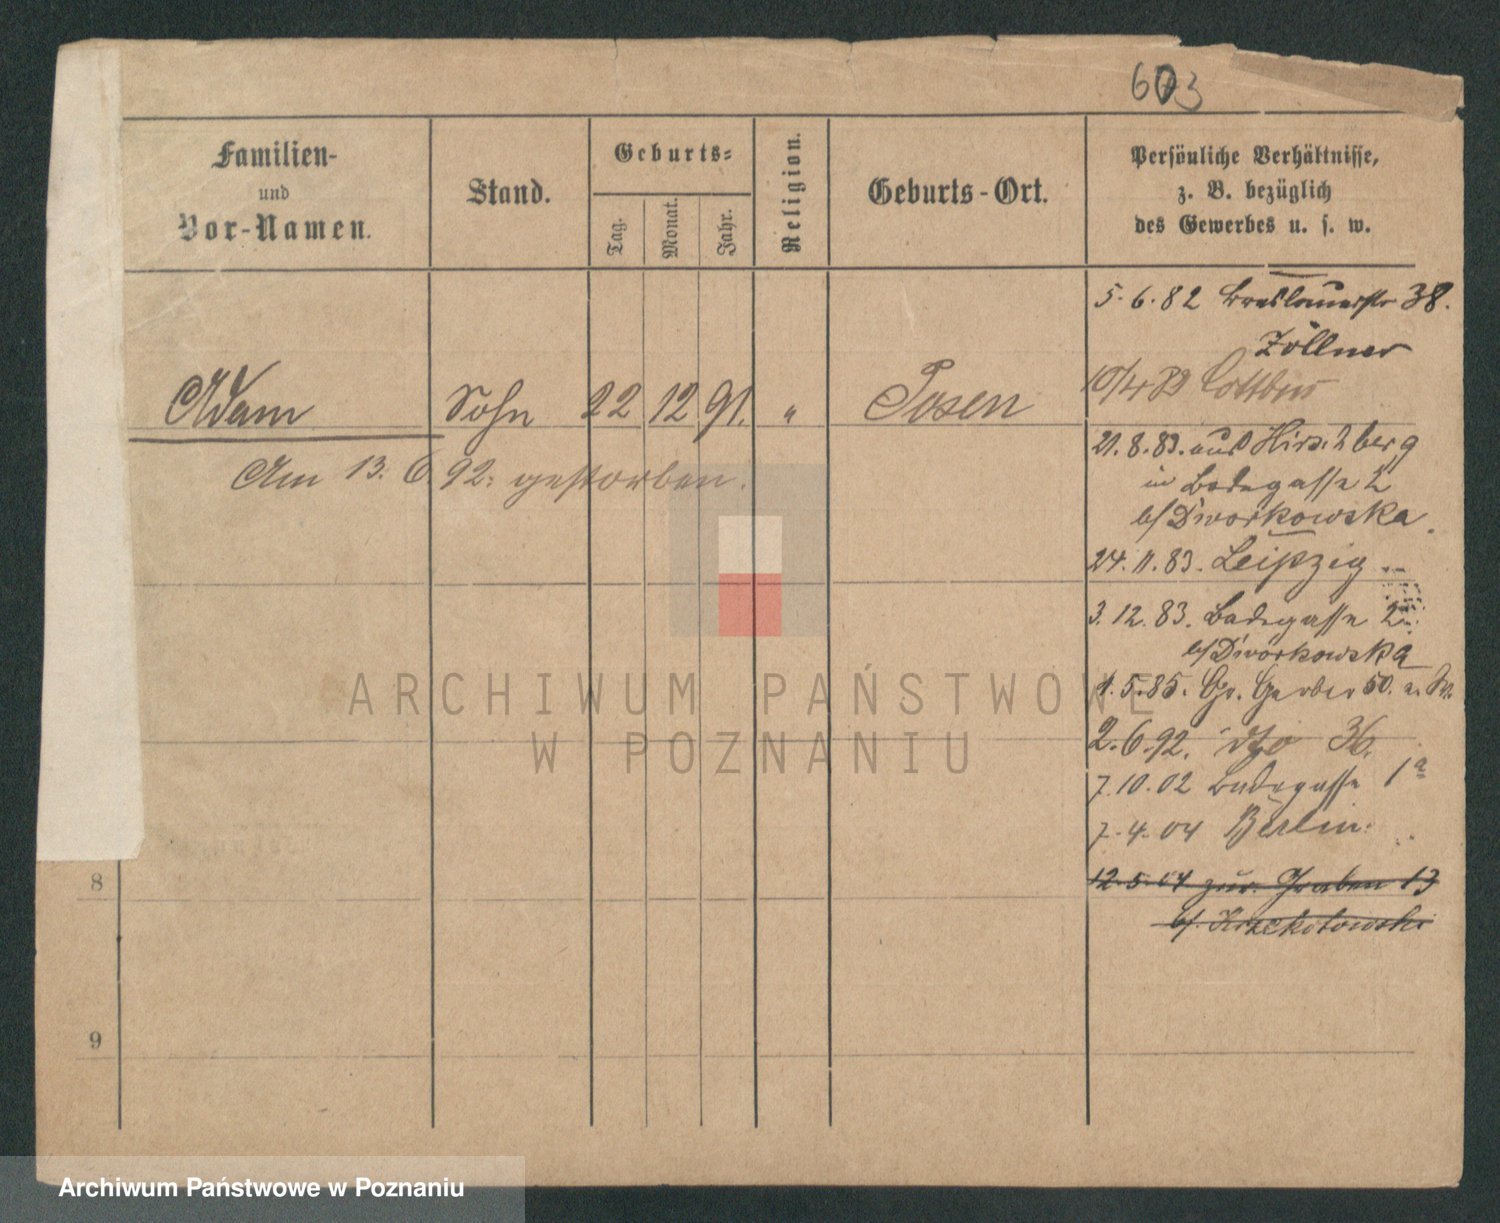 603
Familien-
und
Vor-Namen.
Stand.
Geburts-
Tag.
Monat.
Jahr.
Religion.
Geburts-Ort.
Persönliche Verhältnisse,
z. B. bezüglich
des Gewerbes u. s. w.
Adam Sohn 22 12 91. " Posen
Am 13. 6 92. gestorben.
5.6.82 Breslauerstr 38.
Zöllner
Cottbus
21.8.83. aus Hirschberg
in Badegasse 2
b/ Dworkowska
24.11.83. Leipzig
3.12.83. Badegasse 2
b/ Dworkowska
1.5.85. Gr. Gerber 50.
2.6.92. dto 36.
7.10.02 Badegasse 1a
7.4.04 Berlin.
12.5.04 zur. Graben 13
b/
8
9
ARCHIWUM PAŃSTWOWE
W POZNANIU
Archiwum Państwowe w Poznaniu